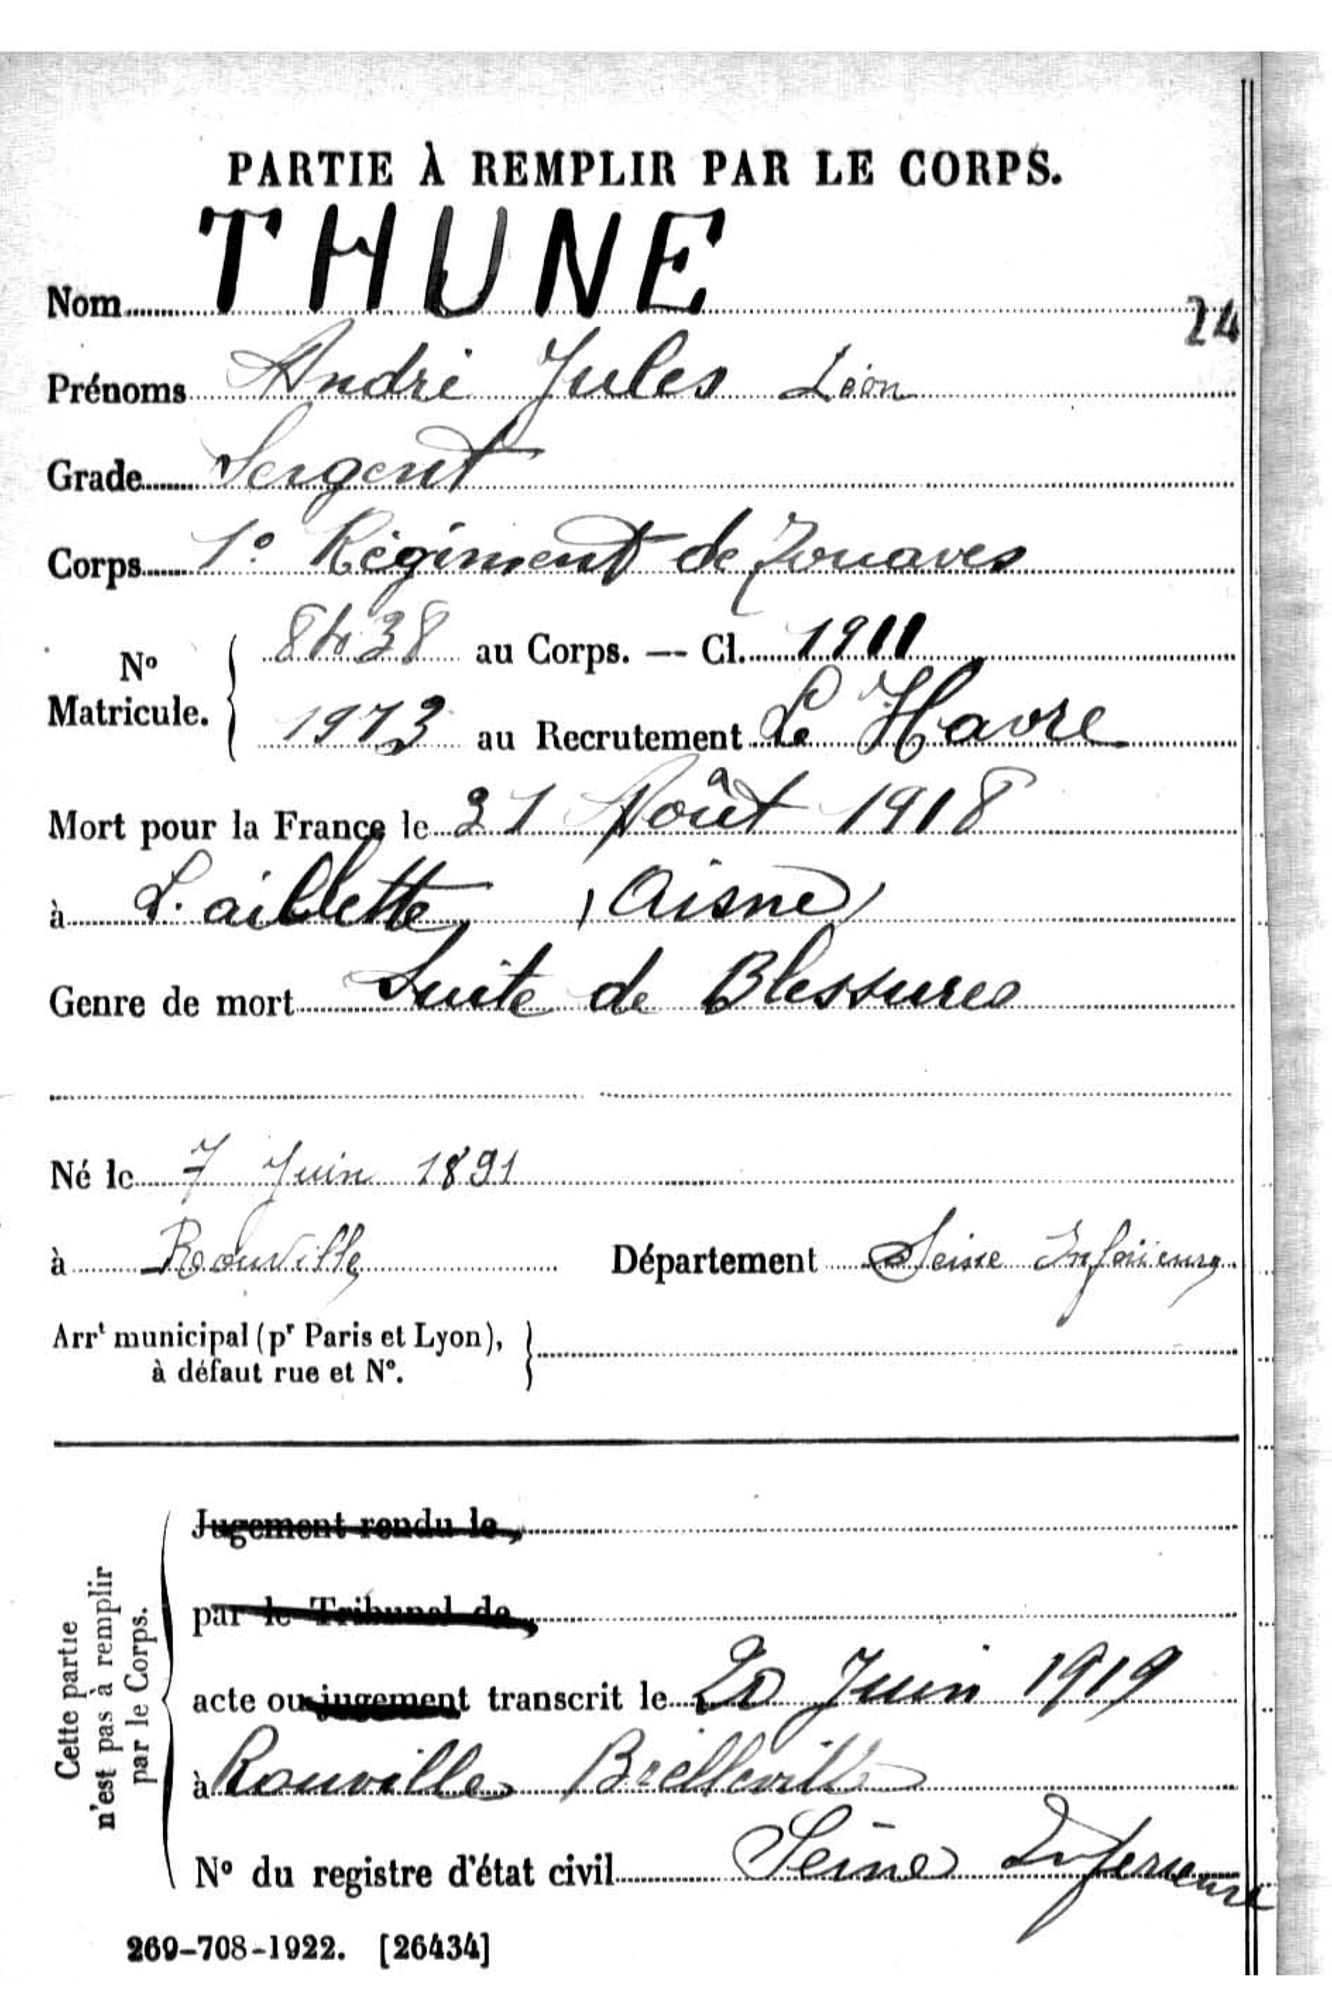 PARTIE À REMPLIR PAR LE CORPS.
Nom THUNE
24
Prénoms André Jules Léon
Grade Sergent
Corps 1° Régiment de Zouaves
N° Matricule. 8438 au Corps. — Cl. 1911
1973 au Recrutement Le Havre
Mort pour la France le 21 Août 1918
à L'aillette (Aisne)
Genre de mort Suite de Blessures
Né le 7 Juin 1891
à Rouville Département Seine Inférieure
Arrt municipal (pr Paris et Lyon),
à défaut rue et N°.
Cette partie
n'est pas à remplir
par le Corps.
Jugement rendu le,
par le Tribunal de,
acte ou jugement transcrit le 20 Juin 1919
à Rouville Bielleville
N° du registre d'état civil Seine Inferieure
269-708-1922. [26434]